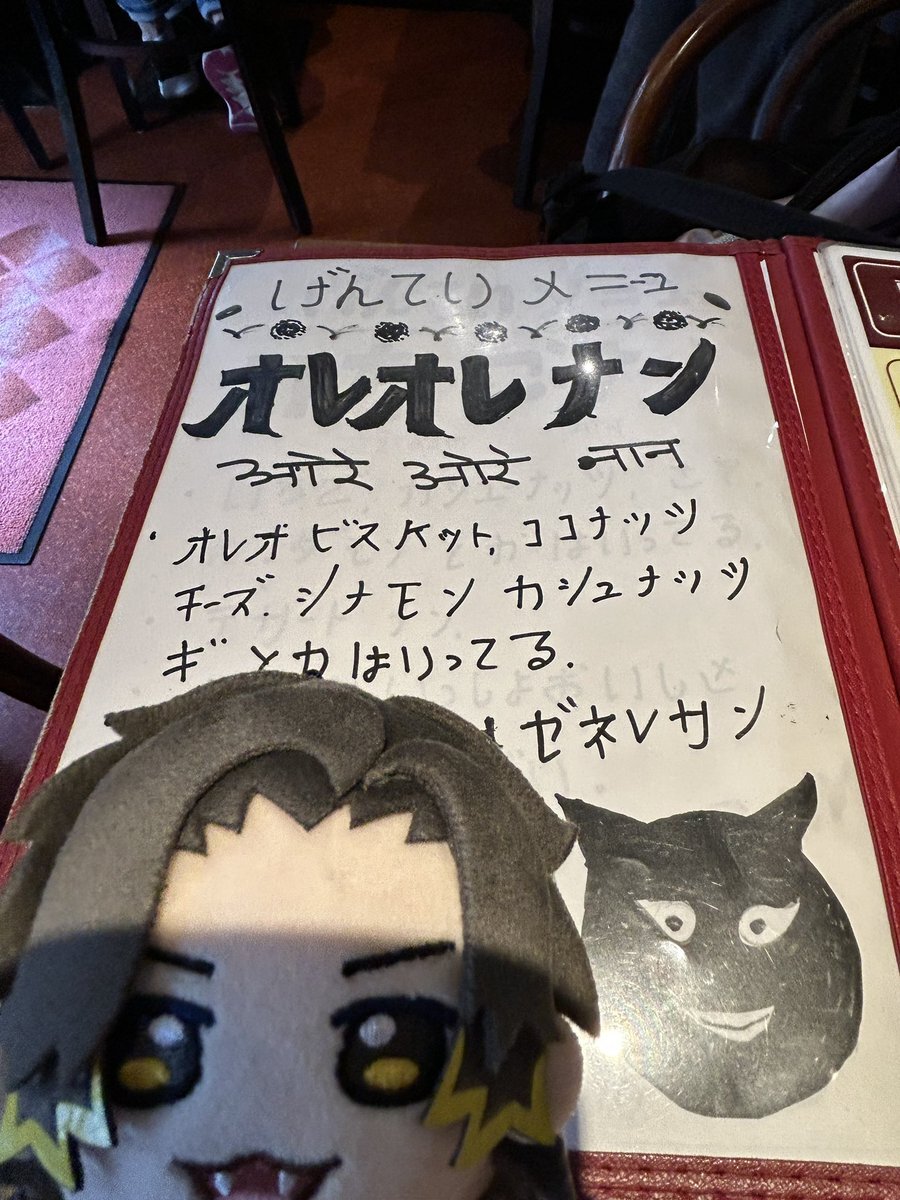 げんてい メニュー
オレオレ ナン
ओरे ओरे नान
・オレオ ビスケット, ココナッツ
チーズ. シナモン カシュナッツ
ギ とか はいってる.
ゼネレサン